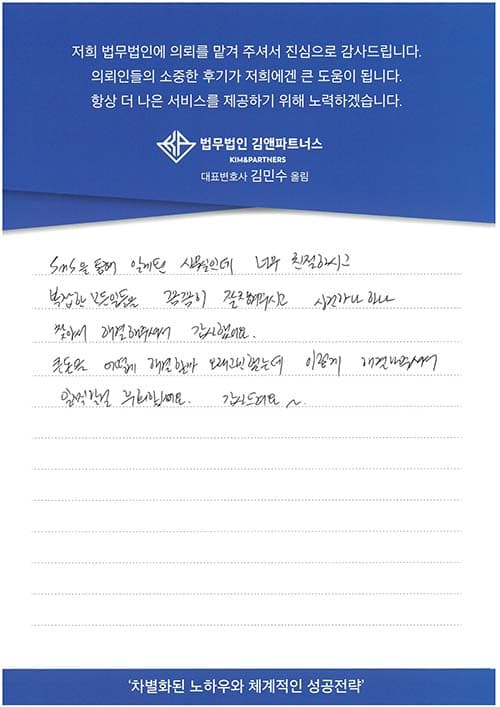 저희 법무법인에 의뢰를 맡겨 주셔서 진심으로 감사드립니다.
의뢰인들의 소중한 후기가 저희에겐 큰 도움이 됩니다.
항상 더 나은 서비스를 제공하기 위해 노력하겠습니다.
법무법인 김앤파트너스
KIM&PARTNERS
대표변호사 김민수 올림
SNS을 통해 알게된 사무실인데 너무 친절하시고
복잡한 모든일들을 꼼꼼히 잘 하나 하나
찾아서 해결해주셔서 감사했어요.
어떻게 해결할까 오래고민했는데 이렇게 해결해주셔서
감사드려요~
'차별화된 노하우와 체계적인 성공전략'